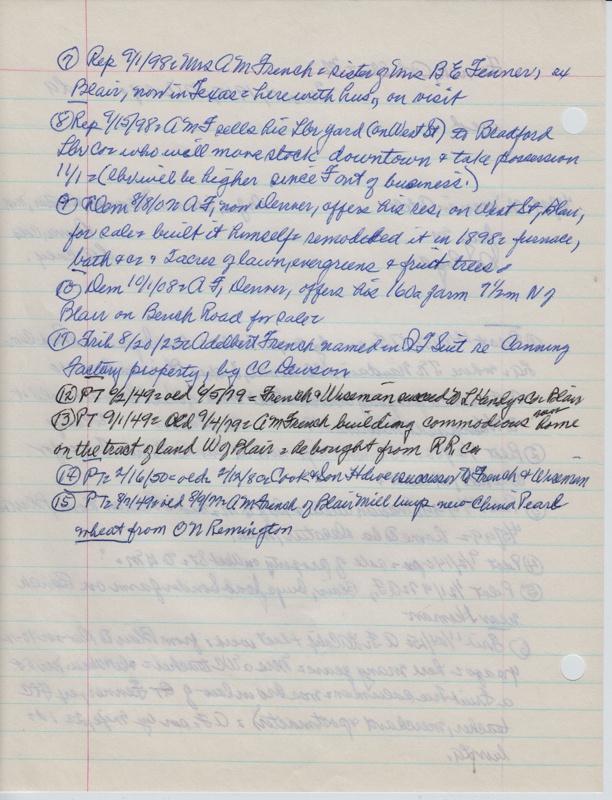 ⑦ Rep 9/1/98 = Mrs A M French = sister of Mrs B E Fenner, ex
Blair, now in Texas = here with hus, on visit
⑧ Rep 9/15/98 = A M F sells his Lbr yard (on West St) to Bradford
Lbr Co = who will move stock downtown & take possession
11/1 = (Lbr will be higher since F out of business!)
⑨ Dem 8/8/07 A F, now Denver, offers his res, on West St, Blair,
for sale = built it himself = remodeled it in 1898 = furnace,
bath & cc & acres of lawn, evergreens & fruit trees
⑩ Dem 10/1/08 = A F, Denver, offers his 160a farm 7 1/2 m N of
Blair on Bench Road for sale =
⑪ Trib 8/20/23 = Adelbert French named in Q T Suit re Canning
factory property, by CC Dawson
⑫ PT 9/2/49 = oed 9/5/79 = French & Wiseman succeed W L Henly & Co Blair
⑬ PT 9/1/49 = oed 9/4/79 = A M French building commodious new home
on the tract of land W of Blair = he bought from R R Co
⑭ PT = 2/16/50 = oed = 2/12/80 = Cook & Son successor to French & Wiseman
⑮ PT = = oed = A M French of Blair Mill buys new China Pearl
wheat from O N Remington